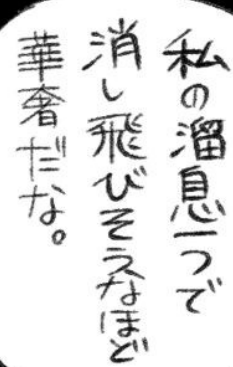 私の溜息一つで
消し飛びそうなほど
華奢だな。